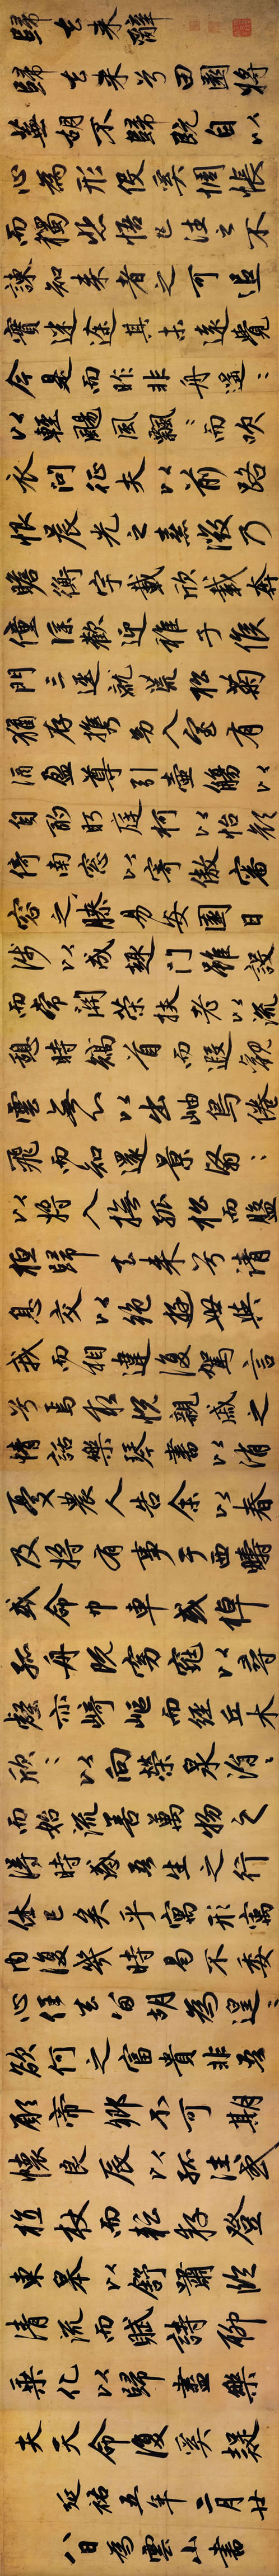 歸去來辭
歸去來兮田園將
蕪胡不歸既自以
心為形役奚惆悵
而獨悲悟已往之不
諫知來者之可追
實迷途其未遠覺
今是而昨非舟遥〻
以輕颺風飄〻而吹
衣問征夫以前路
恨晨光之熹微乃
瞻衡宇載欣載奔
僮僕歡迎稚子候
門三逕就荒松菊
猶存攜幼入室有
酒盈尊引壺觴以
自酌眄庭柯以怡顏
倚南窓以寄傲審
容之膝易安園日
涉以成趣門雖設
而常関策扶老以流
憩時矯首而遐觀
雲無心以出岫鳥倦
飛而知還景翳〻
以將入撫孤松而盤
桓歸去來兮請
息交以絕遊世與
我而相違復駕言
兮焉求悅親戚之
情話樂琴書以消
憂農人告余以春
及將有事于西疇
或命巾車或棹
孤舟既窈窕以尋
壑亦崎嶇而經丘木
欣〻以向榮泉涓〻
而始流善萬物之
得時感吾生之行
休已矣乎寓形寓
內復幾時曷不委
心任去留胡為遑〻
欲何之富貴非吾
願帝鄉不可期
懷良辰以孤往或
植杖而耘耔登
東皋以舒嘯臨
清流而賦詩聊
乘化以歸盡樂
夫天命復奚疑
延祐五年二月廿
八日為雲山書